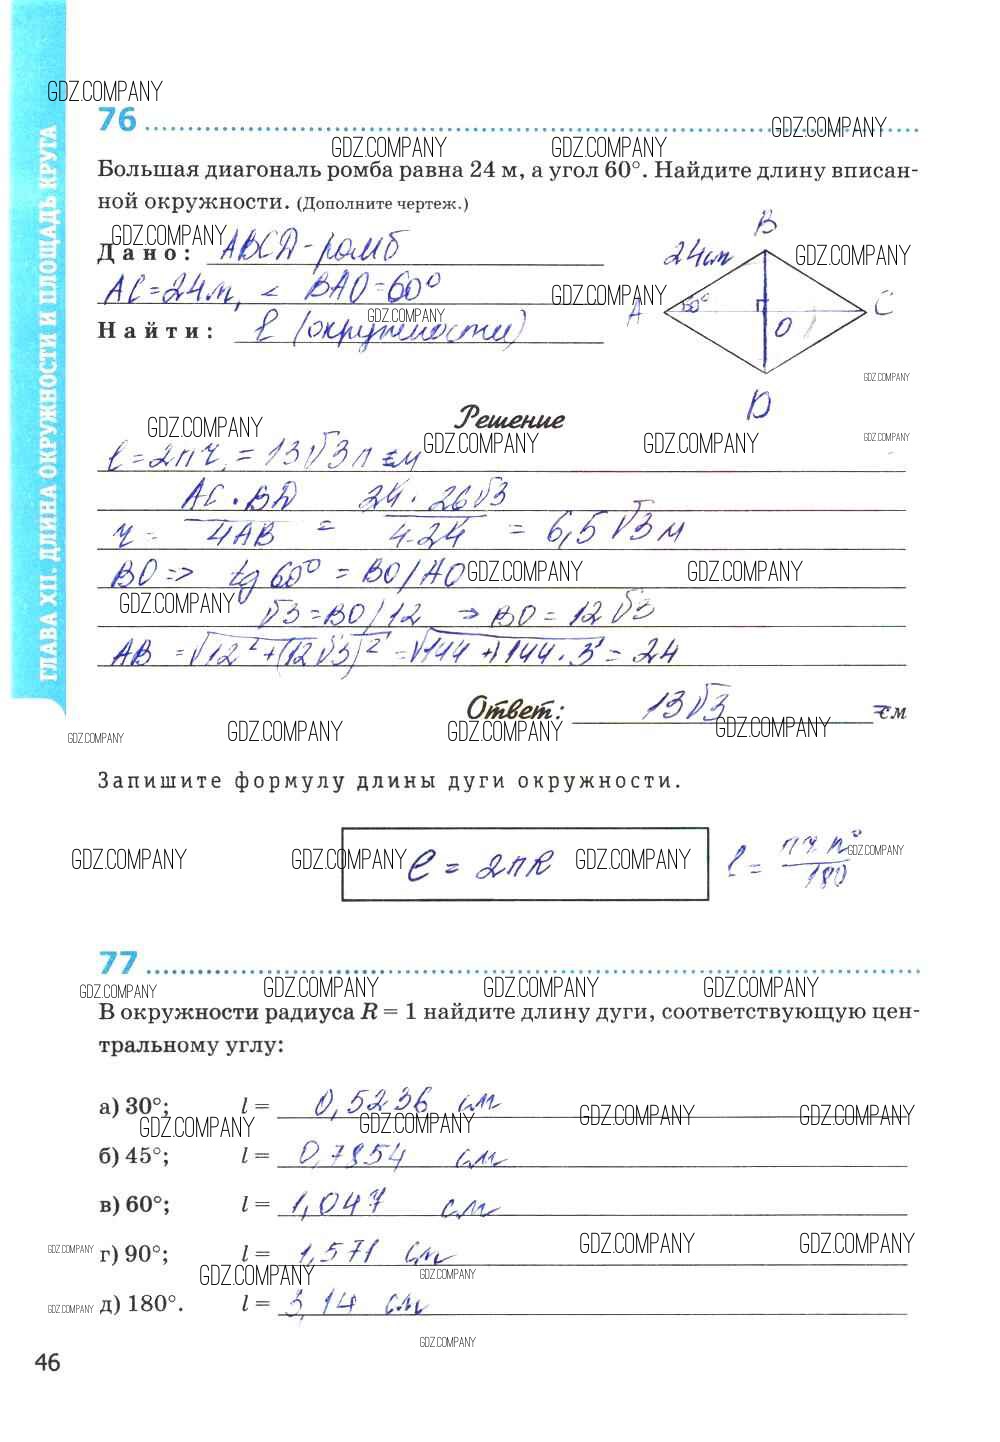 GDZ.COMPANY
76
GDZ.COMPANY
GDZ.COMPANY GDZ.COMPANY
Большая диагональ ромба равна 24 м, а угол 60°. Найдите длину вписан-
ной окружности. (Дополните чертеж.)
GDZ.COMPANY
Дано: ABCD - ромб
B
24 см
GDZ.COMPANY
AC = 24 м, < BAO = 60°
GDZ.COMPANY
A 60° O C
GDZ.COMPANY
Найти: ℓ (окружности)
GDZ.COMPANY
D
Решение
GDZ.COMPANY GDZ.COMPANY GDZ.COMPANY GDZ.COMPANY
ℓ = 2πr = 13√3 π м
AC · BD 24 · 26√3
r = 4AB = 4·24 = 6,5√3 м
BO => tg 60° = BO/AO
GDZ.COMPANY GDZ.COMPANY
GDZ.COMPANY
√3 = BO/12 → BO = 12√3
AB = √12² + (12√3)² = √144 + 144·3 = 24
Ответ: 13√3 см
GDZ.COMPANY GDZ.COMPANY GDZ.COMPANY GDZ.COMPANY
Запишите формулу длины дуги окружности.
GDZ.COMPANY GDZ.COMPANY GDZ.COMPANY GDZ.COMPANY
ℓ = 2πR
ℓ = πr n° / 180
77
GDZ.COMPANY GDZ.COMPANY GDZ.COMPANY GDZ.COMPANY
В окружности радиуса R = 1 найдите длину дуги, соответствующую цен-
тральному углу:
а) 30°; l = 0,5236 см
GDZ.COMPANY GDZ.COMPANY GDZ.COMPANY GDZ.COMPANY
б) 45°; l = 0,7854 см
в) 60°; l = 1,047 см
GDZ.COMPANY GDZ.COMPANY GDZ.COMPANY
г) 90°; l = 1,571 см
GDZ.COMPANY GDZ.COMPANY
GDZ.COMPANY
д) 180°. l = 3,14 см
GDZ.COMPANY
46
ГЛАВА XII. ДЛИНА ОКРУЖНОСТИ И ПЛОЩАДЬ КРУГА